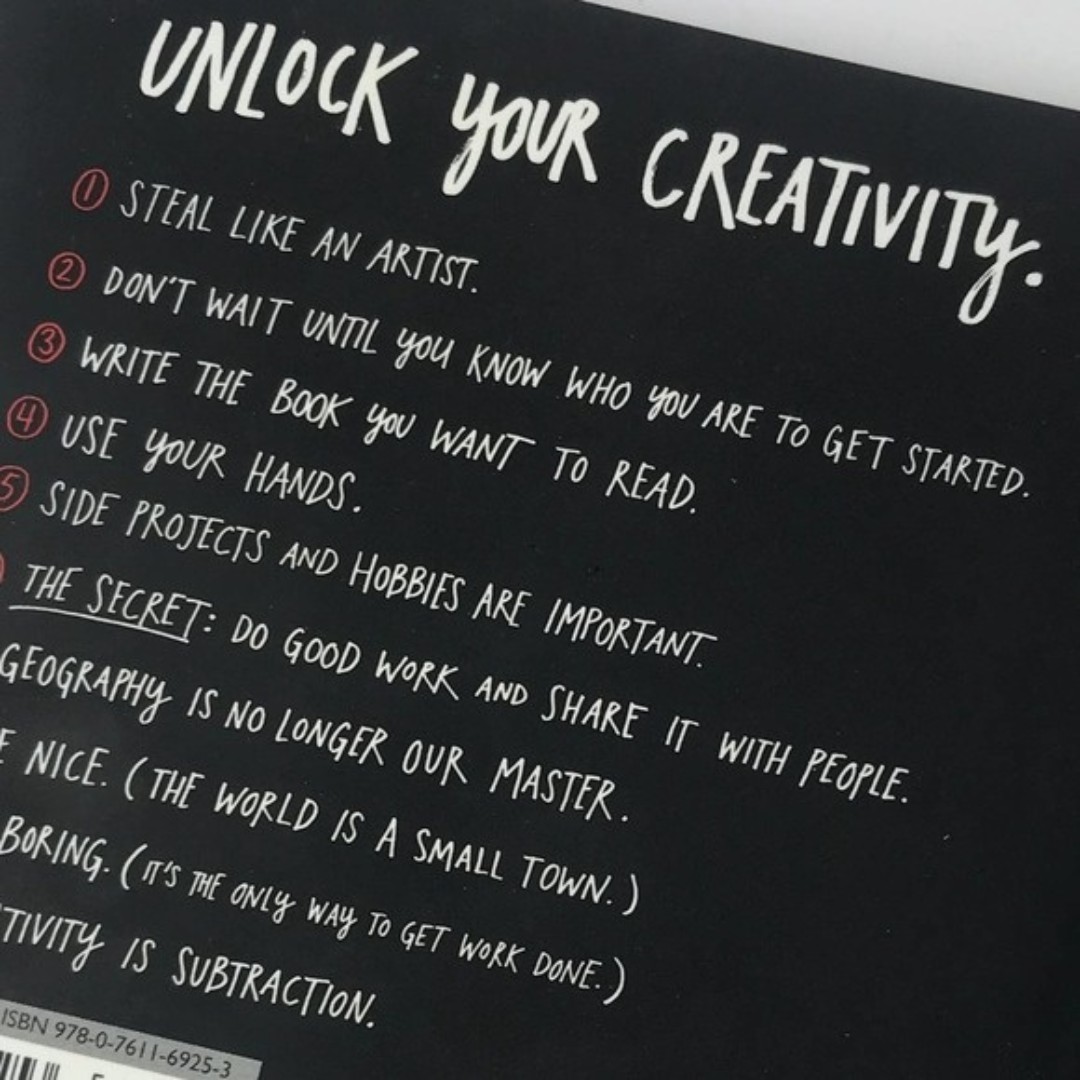 UNLOCK YOUR CREATIVITY.
1 STEAL LIKE AN ARTIST.
2 DON'T WAIT UNTIL YOU KNOW WHO YOU ARE TO GET STARTED.
3 WRITE THE BOOK YOU WANT TO READ.
4 USE YOUR HANDS.
5 SIDE PROJECTS AND HOBBIES ARE IMPORTANT.
THE SECRET: DO GOOD WORK AND SHARE IT WITH PEOPLE.
GEOGRAPHY IS NO LONGER OUR MASTER.
E NICE. (THE WORLD IS A SMALL TOWN.)
BORING. (IT'S THE ONLY WAY TO GET WORK DONE.)
TIVITY IS SUBTRACTION.
ISBN 978-0-7611-6925-3